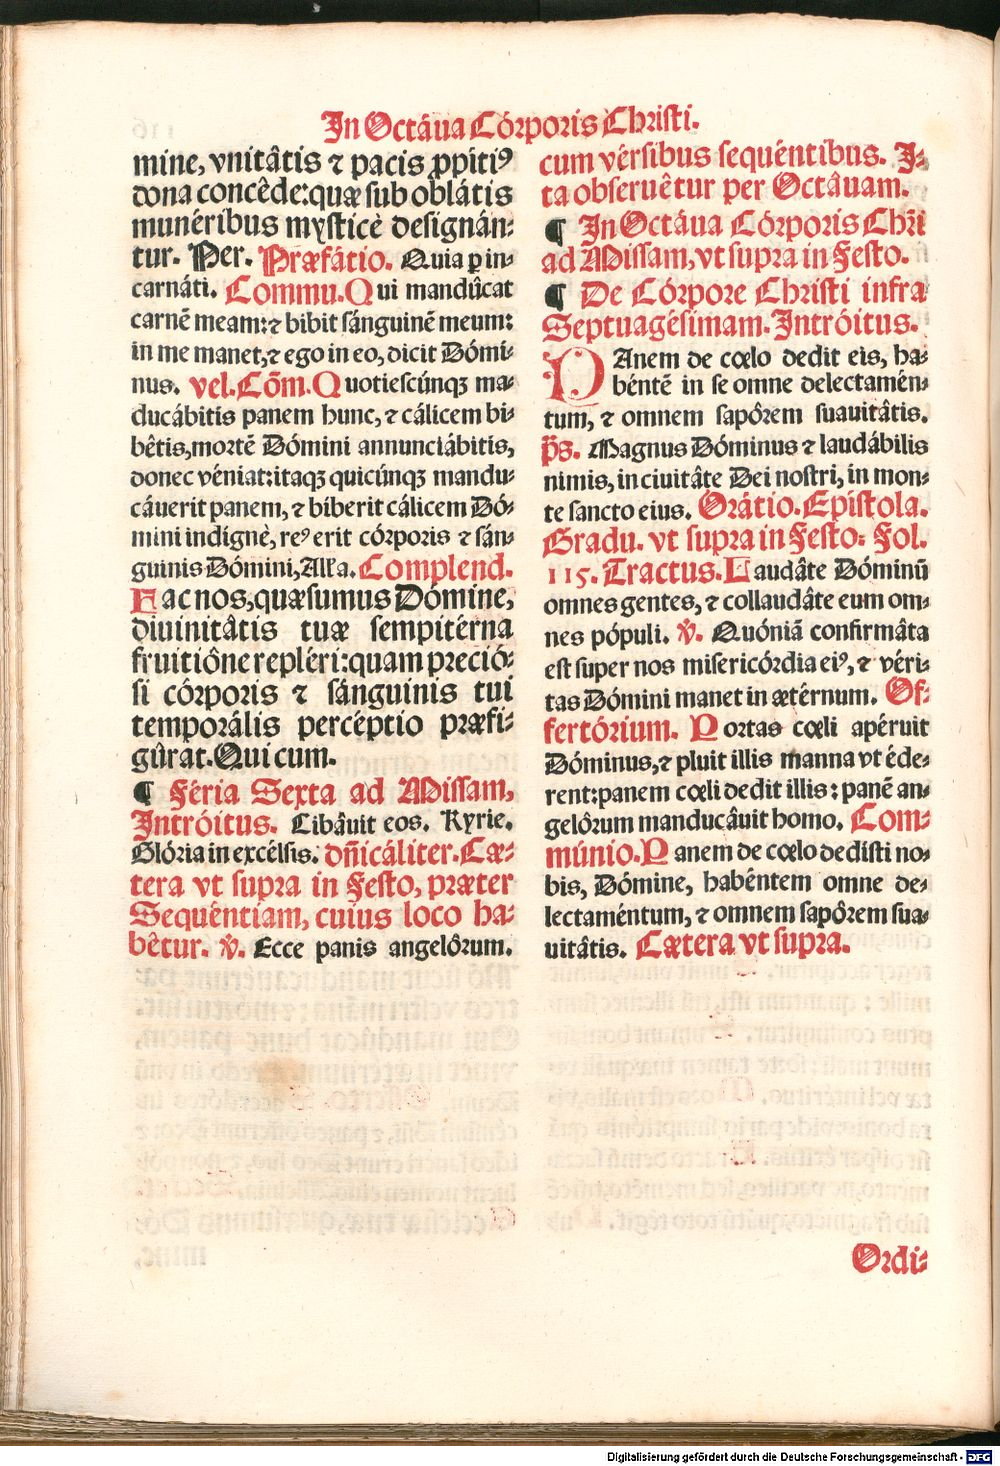 In Octâua Córporis Christi.
mine, vnitâtis ⁊ pacis ꝓpitiꝰ
dona concêde: quæ sub oblâtis
munéribus mysticè designán-
tur. Per. Præfátio. Quia ꝑ in-
carnáti. Commu. Qui mandûcat
carnē meam: ⁊ bibit sánguinē meum:
in me manet, ⁊ ego in eo, dicit Dómi-
nus. vel. Cōm. Quotiescúnqꝫ ma-
ducábitis panem hunc, ⁊ cálicem bi-
bêtis, mortē Dómini annunciábitis,
donec véniat: itaqꝫ quicúnqꝫ mandu-
câuerit panem, ⁊ biberit cálicem Dó-
mini indígnè, reꝰ erit córporis ⁊ sán-
guinis Dómini, Alľa. Complend.
Fac nos, quæsumus Dómine,
diuinitâtis tuæ sempitérna
fruitiône repléri: quam preció-
si córporis ⁊ sánguinis tui
temporâlis percéptio præfi-
gûrat. Qui cum.
¶ Féria Sexta ad Missam,
Intróitus. Cibâuit eos. Kyrie.
Glória in excélsis. dn̄icáliter. Cæ-
tera vt supra in Festo, præter
Sequéntiam, cuius loco ha-
bêtur. ℣. Ecce panis angelôrum.
cum vérsibus sequéntibus. I-
ta obseruêtur per Octâuam.
¶ In Octâua Córporis Chr̄i
ad Missam, vt supra in Festo.
¶ De Córpore Christi infra
Septuagésimam. Intróitus.
PAnem de cœlo dedit eis, ha-
béntē in se omne delectamén-
tum, ⁊ omnem sapôrem suauitâtis.
p̄s. Magnus Dóminus ⁊ laudábilis
nimis, in ciuitâte Dei nostri, in mon-
te sancto eius. Orátio. Epistola.
Gradu. vt supra in Festo: Fol.
115. Tractus. Laudâte Dóminū
omnes gentes, ⁊ collaudâte eum om-
nes pópuli. ℣. Quóniā confirmâta
est super nos misericórdia eiꝰ, ⁊ véri-
tas Dómini manet in ætérnum. Of-
fertórium. Portas cœli apéruit
Dóminus, ⁊ pluit illis manna vt éde-
rent: panem cœli dedit illis: panē an-
gelôrum manducâuit homo. Com-
múnio. Panem de cœlo dedisti no-
bis, Dómine, habéntem omne de-
lectaméntum, ⁊ omnem sapôrem sua-
uitâtis. Cætera vt supra.
Ordi-
Digitalisierung gefördert durch die Deutsche Forschungsgemeinschaft - DFG